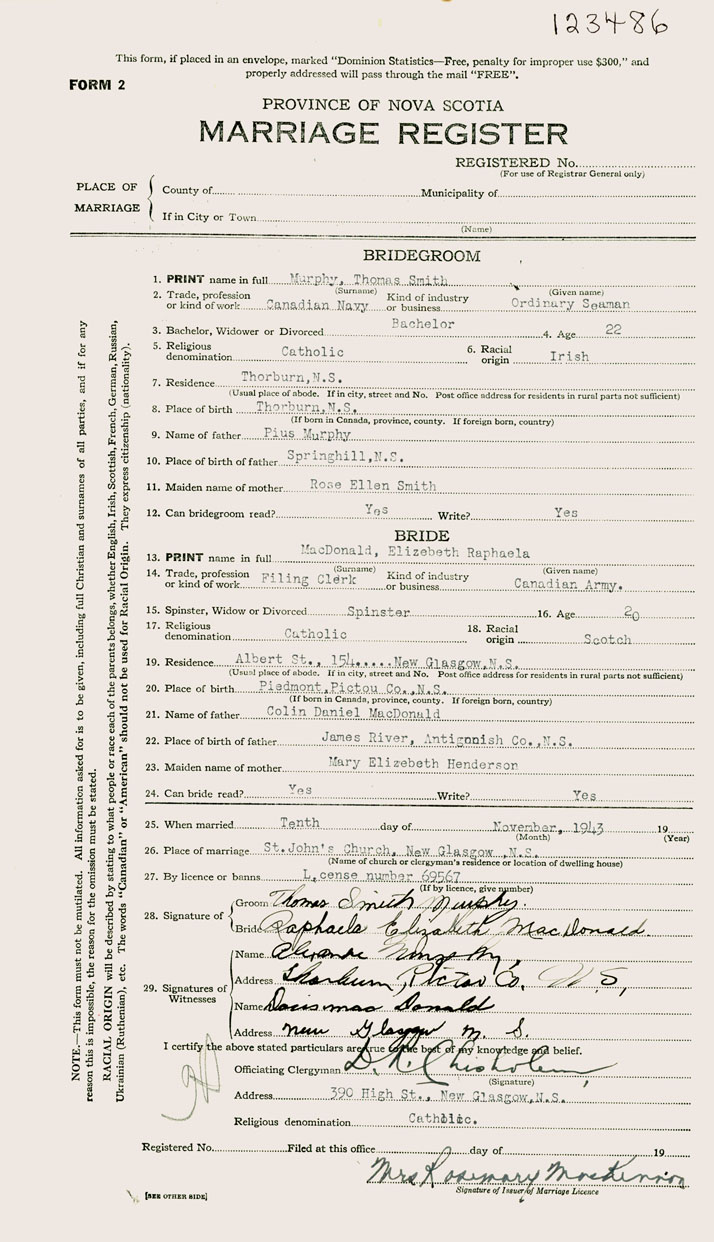 123486
This form, if placed in an envelope, marked "Dominion Statistics—Free, penalty for improper use $300," and
properly addressed will pass through the mail "FREE".
FORM 2
PROVINCE OF NOVA SCOTIA
MARRIAGE REGISTER
REGISTERED No.
(For use of Registrar General only)
PLACE OF MARRIAGE
County of Municipality of
If in City or Town
(Name)
BRIDEGROOM
1. PRINT name in full Murphy, Thomas Smith
(Surname) (Given name)
2. Trade, profession or kind of work Canadian Navy Kind of industry or business Ordinary Seaman
3. Bachelor, Widower or Divorced Bachelor 4. Age 22
5. Religious denomination Catholic 6. Racial origin Irish
7. Residence Thorburn,N.S.
(Usual place of abode. If in city, street and No. Post office address for residents in rural parts not sufficient)
8. Place of birth Thorburn,N.S.
(If born in Canada, province, county. If foreign born, country)
9. Name of father Pius Murphy
10. Place of birth of father Springhill,N.S.
11. Maiden name of mother Rose Ellen Smith
12. Can bridegroom read? Yes Write? Yes
BRIDE
13. PRINT name in full MacDonald, Elizebeth Raphaela
(Surname) (Given name)
14. Trade, profession or kind of work Filing Clerk Kind of industry or business Canadian Army.
15. Spinster, Widow or Divorced Spinster 16. Age 20
17. Religious denomination Catholic 18. Racial origin Scotch
19. Residence Albert St., 154.....New Glasgow,N.S.
(Usual place of abode. If in city, street and No. Post office address for residents in rural parts not sufficient)
20. Place of birth Piedmont,Pictou Co.,N.S.
(If born in Canada, province, county. If foreign born, country)
21. Name of father Colin Daniel MacDonald
22. Place of birth of father James River, Antigonish Co.,N.S.
23. Maiden name of mother Mary Elizebeth Henderson
24. Can bride read? Yes Write? Yes
25. When married Tenth day of November, 1943 19
(Month) (Year)
26. Place of marriage St.John's Church, New Glasgow ,N.S.
(Name of church or clergyman's residence or location of dwelling house)
27. By licence or banns License number 69567
(If by licence, give number)
28. Signature of
Groom Thomas Smith Murphy.
Bride Raphaela Elizabeth MacDonald.
29. Signatures of Witnesses
Name Murphy,
Address Thorburn, Pictou Co. N.S,
Name Doris MacDonald
Address New Glasgow N. S.
I certify the above stated particulars are true to the best of my knowledge and belief.
Officiating Clergyman D. R. Chisholm,
(Signature)
Address 390 High St., New Glasgow,N.S.
Religious denomination Catholic.
Registered No. Filed at this office day of 19
Mrs Rosemary MacKinnon
Signature of Issuer of Marriage Licence
[SEE OTHER SIDE]
NOTE.—This form must not be mutilated. All information asked for is to be given, including full Christian and surnames of all parties, and if for any
reason this is impossible, the reason for the omission must be stated.
RACIAL ORIGIN will be described by stating to what people or race each of the parents belongs, whether English, Irish, Scottish, French, German, Russian,
Ukrainian (Ruthenian), etc. The words "Canadian" or "American" should not be used for Racial Origin. They express citizenship (nationality).